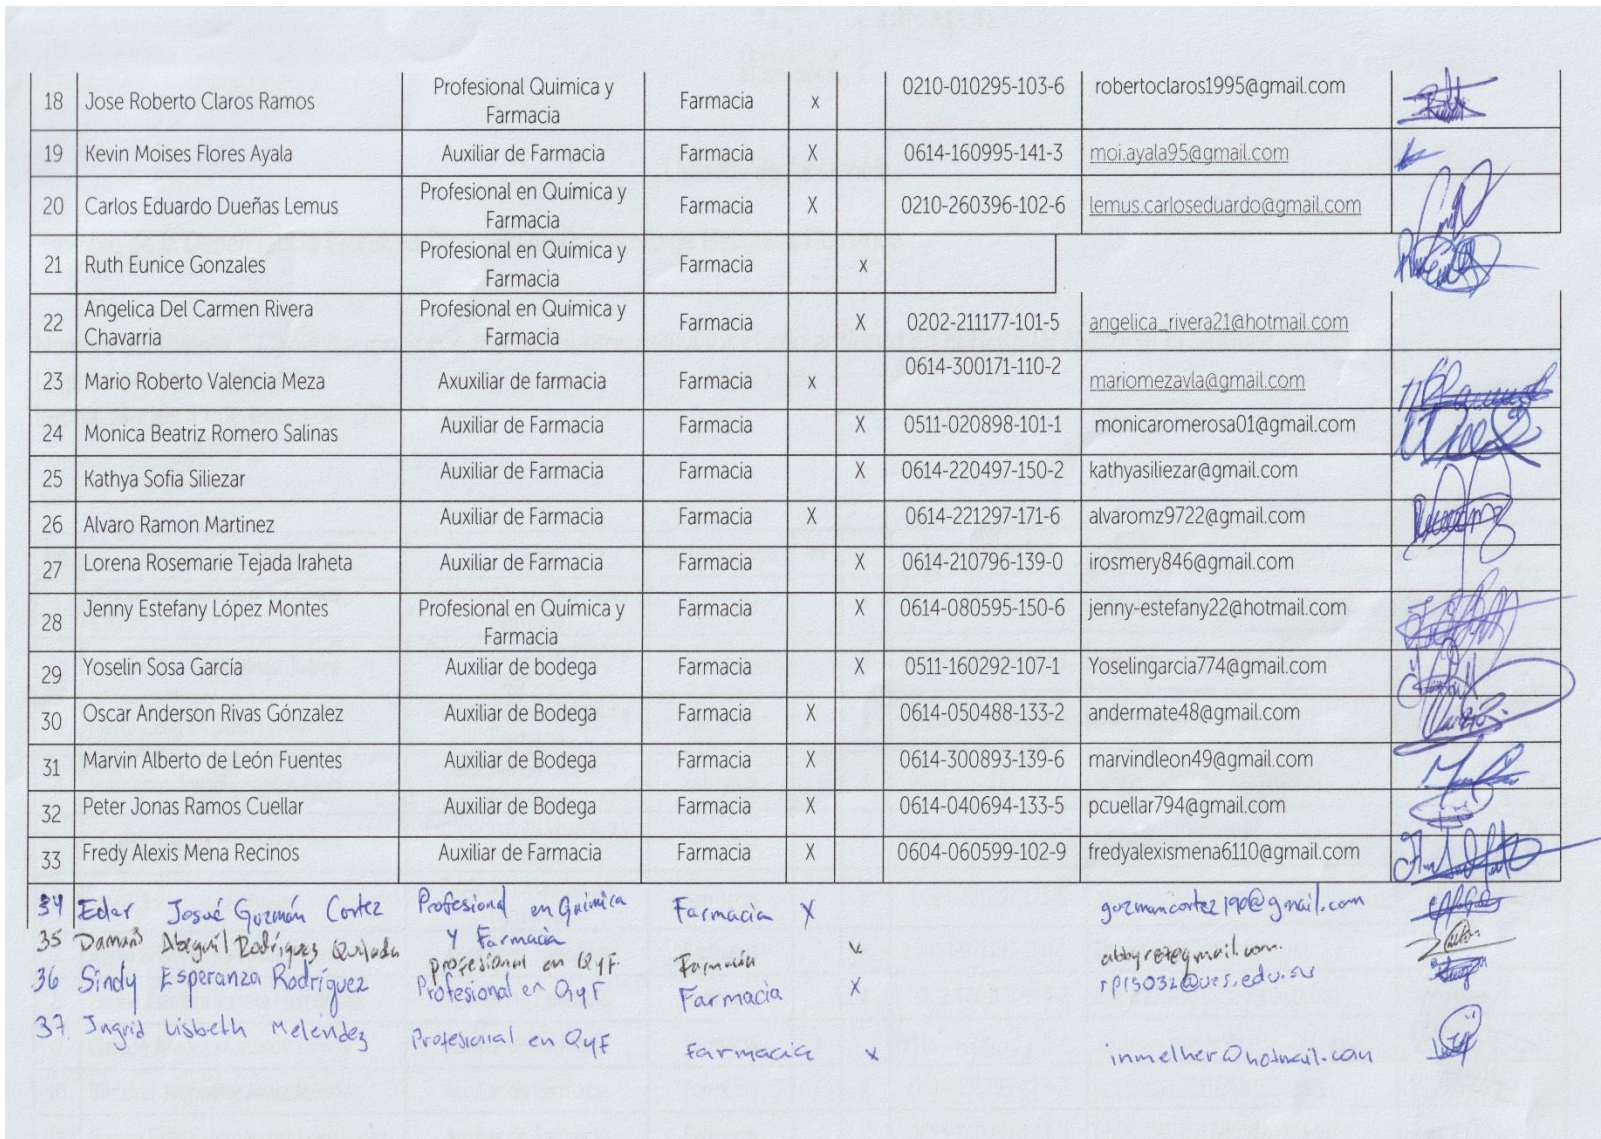 18 Jose Roberto Claros Ramos Profesional Quimica y Farmacia Farmacia x 0210-010295-103-6 robertoclaros1995@gmail.com
19 Kevin Moises Flores Ayala Auxiliar de Farmacia Farmacia X 0614-160995-141-3 moi.ayala95@gmail.com
20 Carlos Eduardo Dueñas Lemus Profesional en Química y Farmacia Farmacia X 0210-260396-102-6 lemus.carloseduardo@gmail.com
21 Ruth Eunice Gonzales Profesional en Química y Farmacia Farmacia x
22 Angelica Del Carmen Rivera Chavarria Profesional en Química y Farmacia Farmacia X 0202-211177-101-5 angelica_rivera21@hotmail.com
23 Mario Roberto Valencia Meza Axuxiliar de farmacia Farmacia x 0614-300171-110-2 mariomezavla@gmail.com
24 Monica Beatriz Romero Salinas Auxiliar de Farmacia Farmacia X 0511-020898-101-1 monicaromerosa01@gmail.com
25 Kathya Sofia Siliezar Auxiliar de Farmacia Farmacia X 0614-220497-150-2 kathyasiliezar@gmail.com
26 Alvaro Ramon Martinez Auxiliar de Farmacia Farmacia X 0614-221297-171-6 alvaromz9722@gmail.com
27 Lorena Rosemarie Tejada Iraheta Auxiliar de Farmacia Farmacia X 0614-210796-139-0 irosmery846@gmail.com
28 Jenny Estefany López Montes Profesional en Química y Farmacia Farmacia X 0614-080595-150-6 jenny-estefany22@hotmail.com
29 Yoselin Sosa García Auxiliar de bodega Farmacia X 0511-160292-107-1 Yoselingarcia774@gmail.com
30 Oscar Anderson Rivas Gónzalez Auxiliar de Bodega Farmacia X 0614-050488-133-2 andermate48@gmail.com
31 Marvin Alberto de León Fuentes Auxiliar de Bodega Farmacia X 0614-300893-139-6 marvindleon49@gmail.com
32 Peter Jonas Ramos Cuellar Auxiliar de Bodega Farmacia X 0614-040694-133-5 pcuellar794@gmail.com
33 Fredy Alexis Mena Recinos Auxiliar de Farmacia Farmacia X 0604-060599-102-9 fredyalexismena6110@gmail.com
34 Josué Guzmán Cortez Profesional en Química y Farmacia Farmacia X guzmancortez190@gmail.com
35 Rodríguez Quijada profesional en QyF. Farmacia
36 Sindy Esperanza Rodríguez Profesional en QyF Farmacia X rp15032@ues.edu.sv
37. Ingrid Lisbeth Melendez Profesional en QyF Farmacia x inmelher@hotmail.com